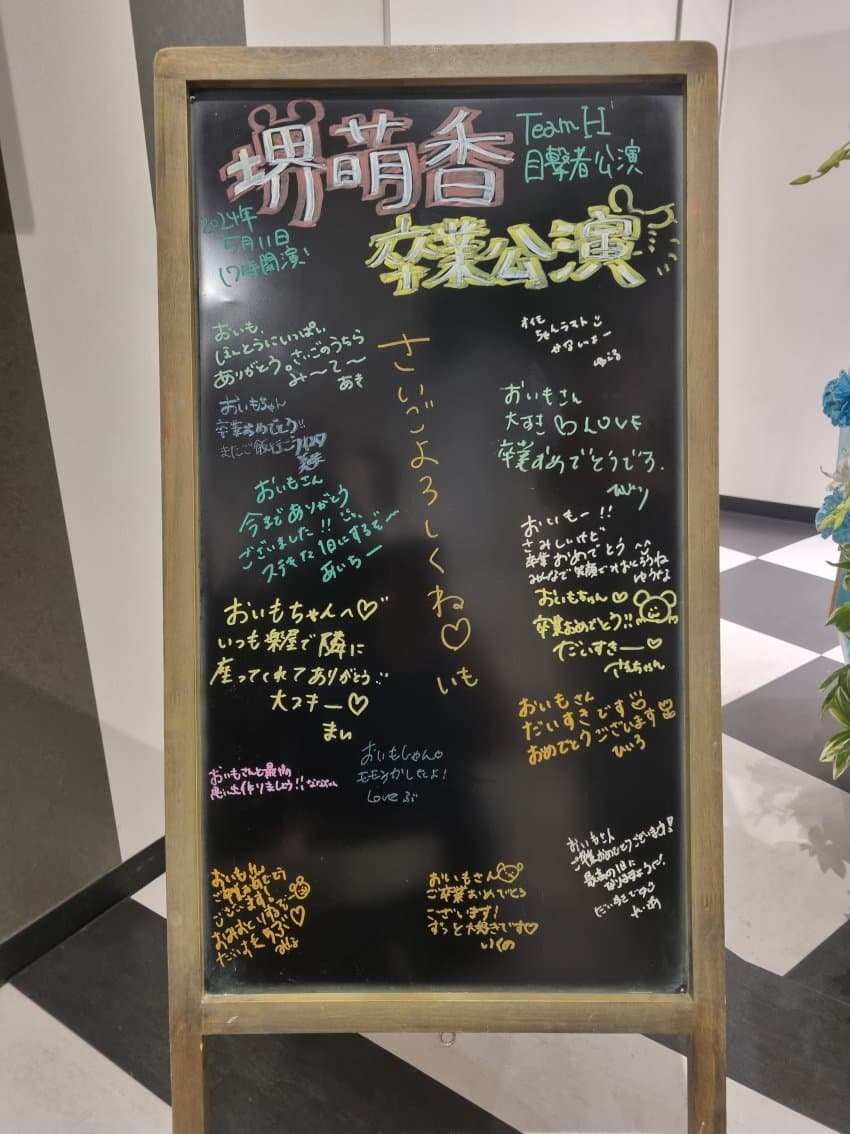 堺萌香
Team H
目撃者公演
卒業公演
2024年
5月11日
17時開演!
おいも、
ほんとうにいっぱい
ありがとう。さいごのうちら
み〜て〜
あき
おいもちゃん
卒業おめでとう!!
またご飯行こうね♡
さいごよろしくね♡
いも
ちゃんラスト
おいもさん
大すき♡LOVE
卒業おめでとうでろ.
ひびり
おいもさん
今までありがとう
ございました!!
ステキな1日にするぞー
あいちー
おいもー!!
さみしいけど
卒業おめでとう
みんなで笑顔でおくろうね
ゆうな
おいもちゃん♡
卒業おめでとう!!
だいすきー♡
おいもちゃんへ♡
いつも楽屋で隣に
座ってくれてありがとう!!
大スキー♡
まい
おいもさん
だいすきです♡
おめでとうございます
ひいろ
おいもしゃん
Loveぶ
おいもさんと最高の
思い出作りましょう!!ななちゃん
おいもさん
ご卒業おめでとうございます!
最高の1日に
なりますように!
だいすきです
おいもさん
ご卒業おめでとう
ございます!
だいすき
おいもさん
ご卒業おめでとう
ございます!
ずっと大好きです♡
いくの